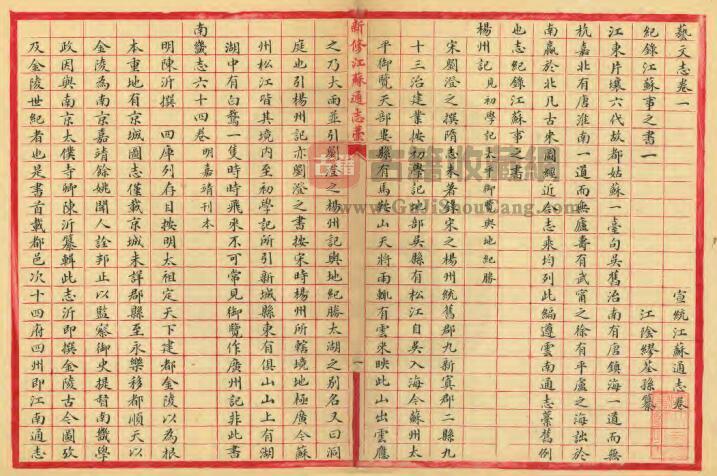 藝文志卷一
宣統江蘇通志卷
紀錄江蘇事之書一
江陰繆荃孫纂
江東片壤六代故都姑蘇一臺句吳舊治南有唐鎮海一道而無
杭嘉北有唐淮南一道而無廬壽有武甯之徐有平盧之海詘於
南贏於北凡古來圖經近今志乘均列此編遵雲南通志藁舊例
也志紀錄江蘇事之書
楊州記 見初學記太平御覽輿地紀勝
宋劉澄之撰隋志未著錄宋之楊州統舊郡九新寘郡二縣九
十三治建業按初學記地部吳縣有松江自吳入海今蘇州太
平御覽天部婁縣有馬鞍山天將雨輒有雲來映此山出雲應
新修江蘇通志藁
一
之乃大雨並引劉澄之楊州記輿地紀勝太湖之别名又曰洞
庭也引楊州記亦劉澄之書按宋時楊州所轄境地極廣今蘇
州松江皆其境内至初學記所引新城縣東有俱山山上有湖
湖中有白鵞一隻時時飛來不可常見御覽作廣州記非此書
南畿志六十四卷 明嘉靖刊本
明陳沂撰 四庫列存目按明太祖定天下建都金陵以為根
本重地有京城圖志僅載京城未詳郡縣至永樂移都順天以
金陵為南京嘉靖餘姚聞人詮邦正以監察御史提督南畿學
政因與南京太僕寺卿陳沂纂輯此志沂即撰金陵古今圖攷
及金陵世紀者也是書首載都邑次十四府四州即江南通志
古籍
古籍收藏網
www.GuJiShouCang.com